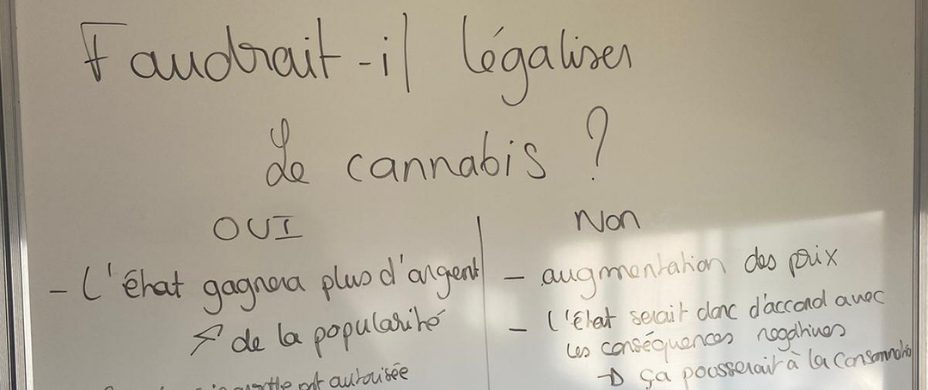 Faudrait-il légaliser
Le cannabis ?
OUI
- L'état gagnera plus d'argent
↗ de la popularité
autorisée
Non
- augmentation des prix
- l'état serait donc d'accord avec
les conséquences négatives
→ ça pousserait à la consommatio